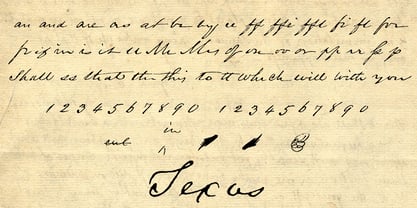 an and are as at be by ee ff ffi ffl fi fl for
fr if in is it ll Me Mrs of on oo or pp rr
Shall ss that the this to tt which will with you
1234567890 1234567890
in
ent ^
Texas